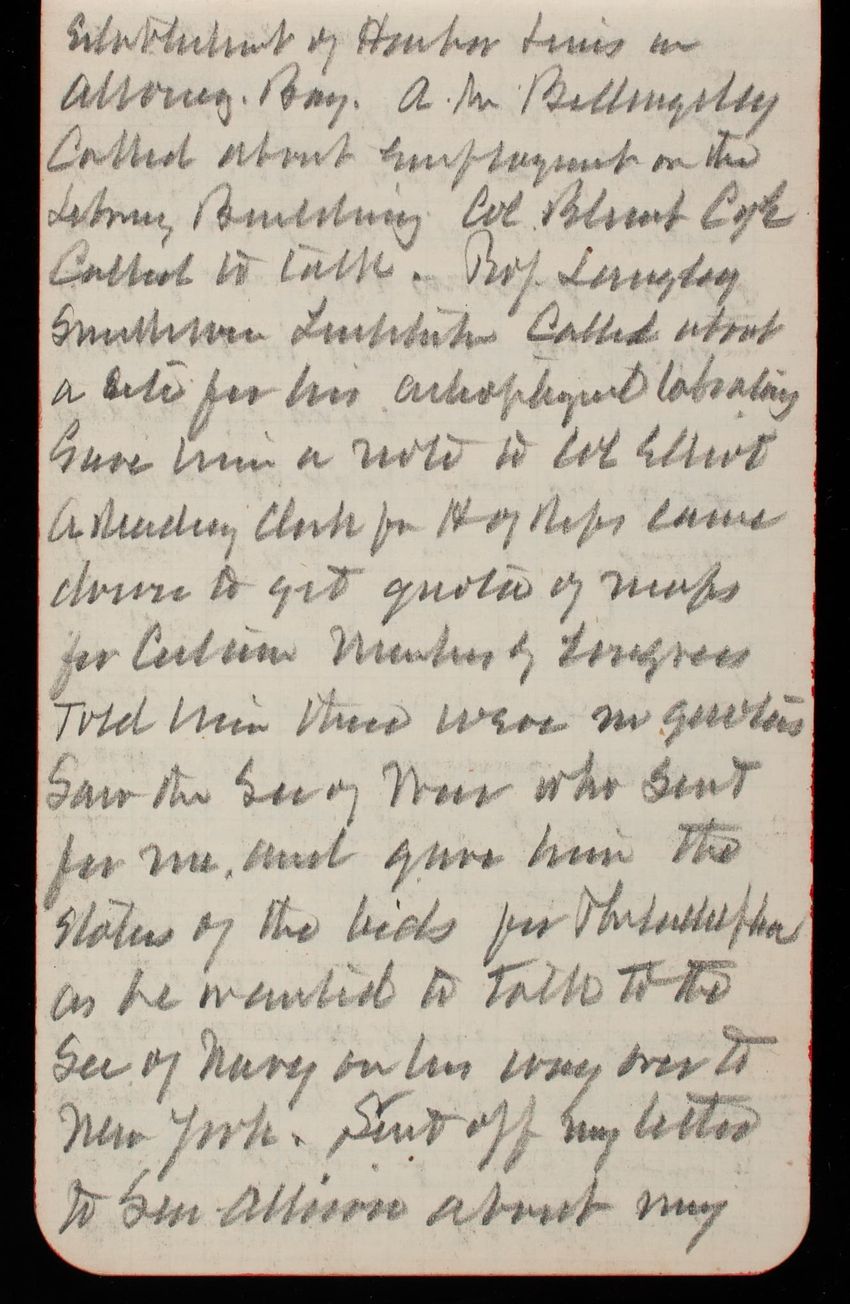 Establishment of Harbor Lines in
Allouez Bay. A. M. Billingsley
Called about employment on the
Library Building Col Blunt C of E
Called to talk. Prof Langley
Smithsonian Institute Called about
a site for his astrophysical laboratory
Gave him a note to Col Elliot
A Reading Clerk for H of Reps came
down to get quota of maps
for Certain Members of Congress
Told him there were no quotas
Saw the Sec of War who sent
for me, and gave him the
status of the bids for Philadelphia
as he wanted to talk to the
Sec of Navy on his way over to
New York. Sent off my letter
to Sen Allison about my